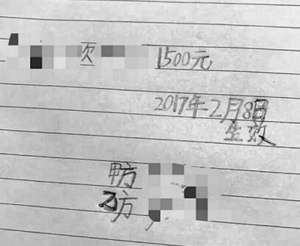 次 1500元
2017年2月8日
生效
甲方
乙方